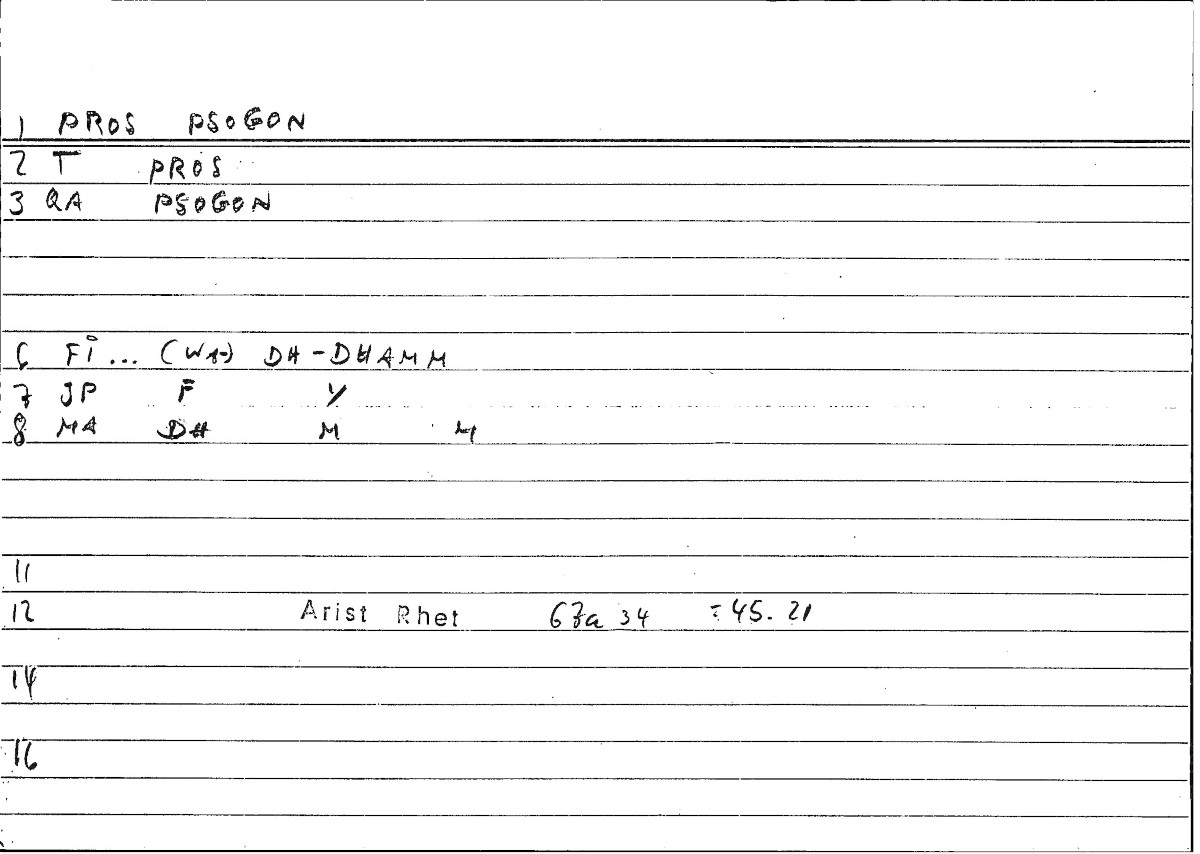 1 PROS PSOGON
2 T PROS
3 QA PSOGON
6 FI... (WA-) DH-DHAMM
7 JP F Y
8 MA DH M M
11
12 Arist Rhet 67a 34 =45.21
14
16